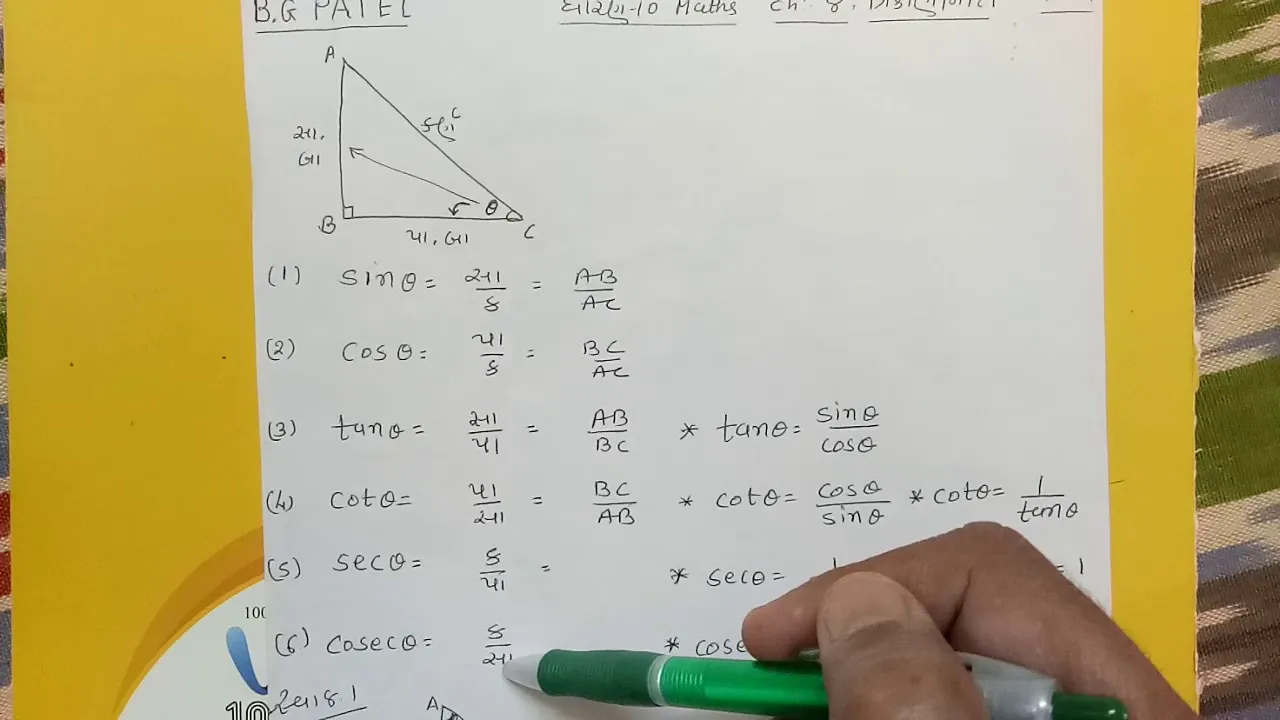 B.G PATEL ધોરણ-10 Maths Ch. 8. ત્રિકોણમિતિ
A
સા.
બા
કર્ણ
θ
B
પા. બા
C
(1) sinθ = સા/ક = AB/AC
(2) cosθ = પા/ક = BC/AC
(3) tanθ = સા/પા = AB/BC * tanθ = sinθ/cosθ
(4) cotθ = પા/સા = BC/AB * cotθ = cosθ/sinθ * cotθ = 1/tanθ
(5) secθ = ક/પા = * secθ = 1 = 1
(6) cosecθ = ક/સા * cose
સ્વા 8.1 A
100
10